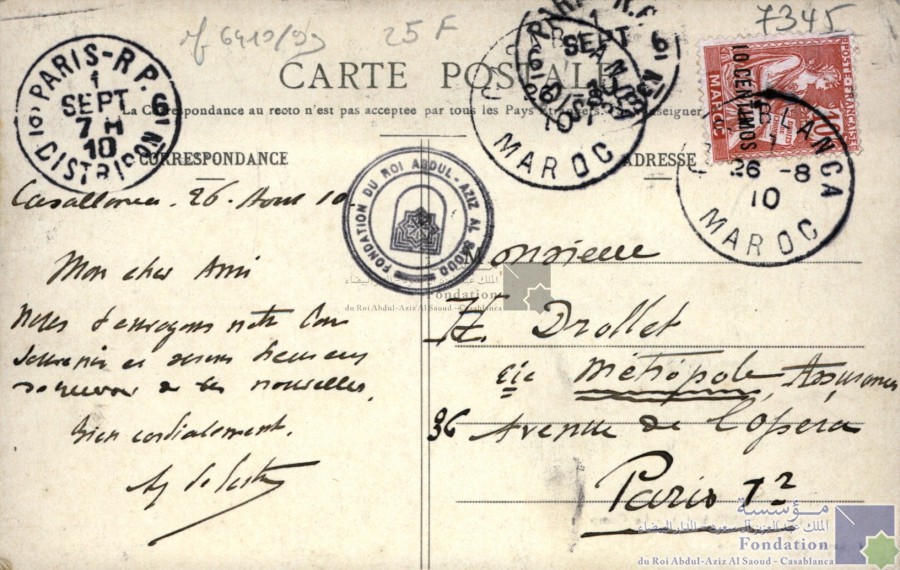 7345
25 F
PARIS-R.P.
1
SEPT
7 H
10
DISTRIBUTION
CARTE POSTALE
La Correspondance au recto n'est pas acceptée par tous les Pays
CORRESPONDANCE
ADRESSE
SEPT
MAROC
POSTE FRANÇAISE
10 CENTIMOS
MAROC
10
CASABLANCA
26 -8
10
MAROC
FONDATION DU ROI ABDUL-AZIZ AL SAOUD
Casablanca. 26. Aout 10
Mon cher Ami
Nous t'envoyons notre bon
souvenir et serons heureux
de tes nouvelles.
Bien cordialement.
Monsieur
Drollet
Cie Métropole, Assurances
36 Avenue de l'opera
Paris
Fondation
du Roi Abdul-Aziz Al Saoud - Casablanca
مؤسسة
الملك عبد العزيز آل سعود - الدار البيضاء
Fondation
du Roi Abdul-Aziz Al Saoud - Casablanca